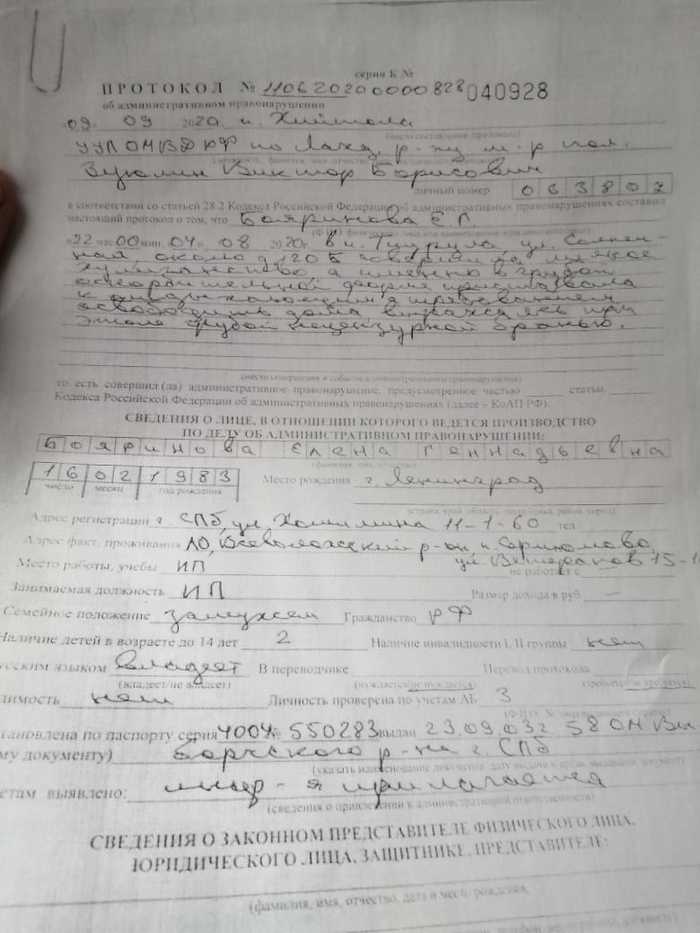 серия К №
ПРОТОКОЛ № 1106 20 20 0000 828 040928
об административном правонарушении
09 09 2020 п. Хийтола
УУП ОМВД РФ по Лахд. р-ну м-р пол.
Виктор Борисович
личный номер 063802
в соответствии со статьей 28.2 Кодекса Российской Федерации об административных правонарушениях составил
настоящий протокол о том, что Бояринова Е.Г.
в 22 час 00 мин. 04 08 2020г. в п. Тиурула ул.
около д. 20 Б совершила мелкое
хулиганство а именно в грубой
оскорбительной форме приставала
к с требованием
освободить дома выражаясь при
этом грубой нецензурной бранью.
(место совершения и событие административного правонарушения)
то есть совершил (ла) административное правонарушение, предусмотренное частью статьи
Кодекса Российской Федерации об административных правонарушениях (далее – КоАП РФ).
СВЕДЕНИЯ О ЛИЦЕ, В ОТНОШЕНИИ КОТОРОГО ВЕДЕТСЯ ПРОИЗВОДСТВО
ПО ДЕЛУ ОБ АДМИНИСТРАТИВНОМ ПРАВОНАРУШЕНИИ:
Бояринова Елена Геннадьевна
16 02 1983 Место рождения г. Ленинград
число месяц год рождения
Адрес регистрации г. СПб, ул. Хошимина 11-1-60 тел
Адрес факт. проживания ЛО, Всеволожский р-он, п. Сертолово
ул. Ветеранов 15-1
Место работы, учебы ИП не работает с
Занимаемая должность ИП Размер дохода в руб. —
Семейное положение замужем Гражданство РФ
Наличие детей в возрасте до 14 лет 2 Наличие инвалидности I, II группы нет
русским языком владеет В переводчике Перевод протокола
(владеет/не владеет) (нуждается/не нуждается)
димость нет Личность проверена по учетам АБ 3
тановлена по паспорту серия 4004 № 550283 выдан 23.09.03г 58 ОМ Вы-
му документу) боргского р-на г. СПб
(указать наименование документа
етам выявлено: инф-я прилагается
(сведения о привлечении к административной ответственности)
СВЕДЕНИЯ О ЗАКОННОМ ПРЕДСТАВИТЕЛЕ ФИЗИЧЕСКОГО ЛИЦА,
ЮРИДИЧЕСКОГО ЛИЦА, ЗАЩИТНИКЕ, ПРЕДСТАВИТЕЛЕ:
(фамилия, имя, отчество, дата и место рождения,